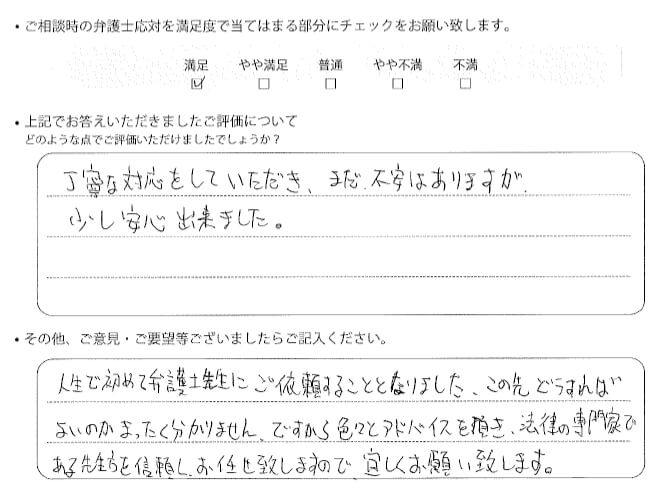 ・ご相談時の弁護士応対を満足度で当てはまる部分にチェックをお願い致します。
満足 やや満足 普通 やや不満 不満
・上記でお答えいただきましたご評価について
どのような点でご評価いただけましたでしょうか？
丁寧な対応をしていただき、まだ、不安はありますが、
少し安心出来ました。
・その他、ご意見・ご要望等ございましたらご記入ください。
人生で初めて弁護士先生にご依頼することとなりました、この先どうすれば
よいのかまったく分かりません、ですから色々とアドバイスを頂き、法律の専門家で
ある先生方を信頼し、お任せ致しますので、宜しくお願い致します。